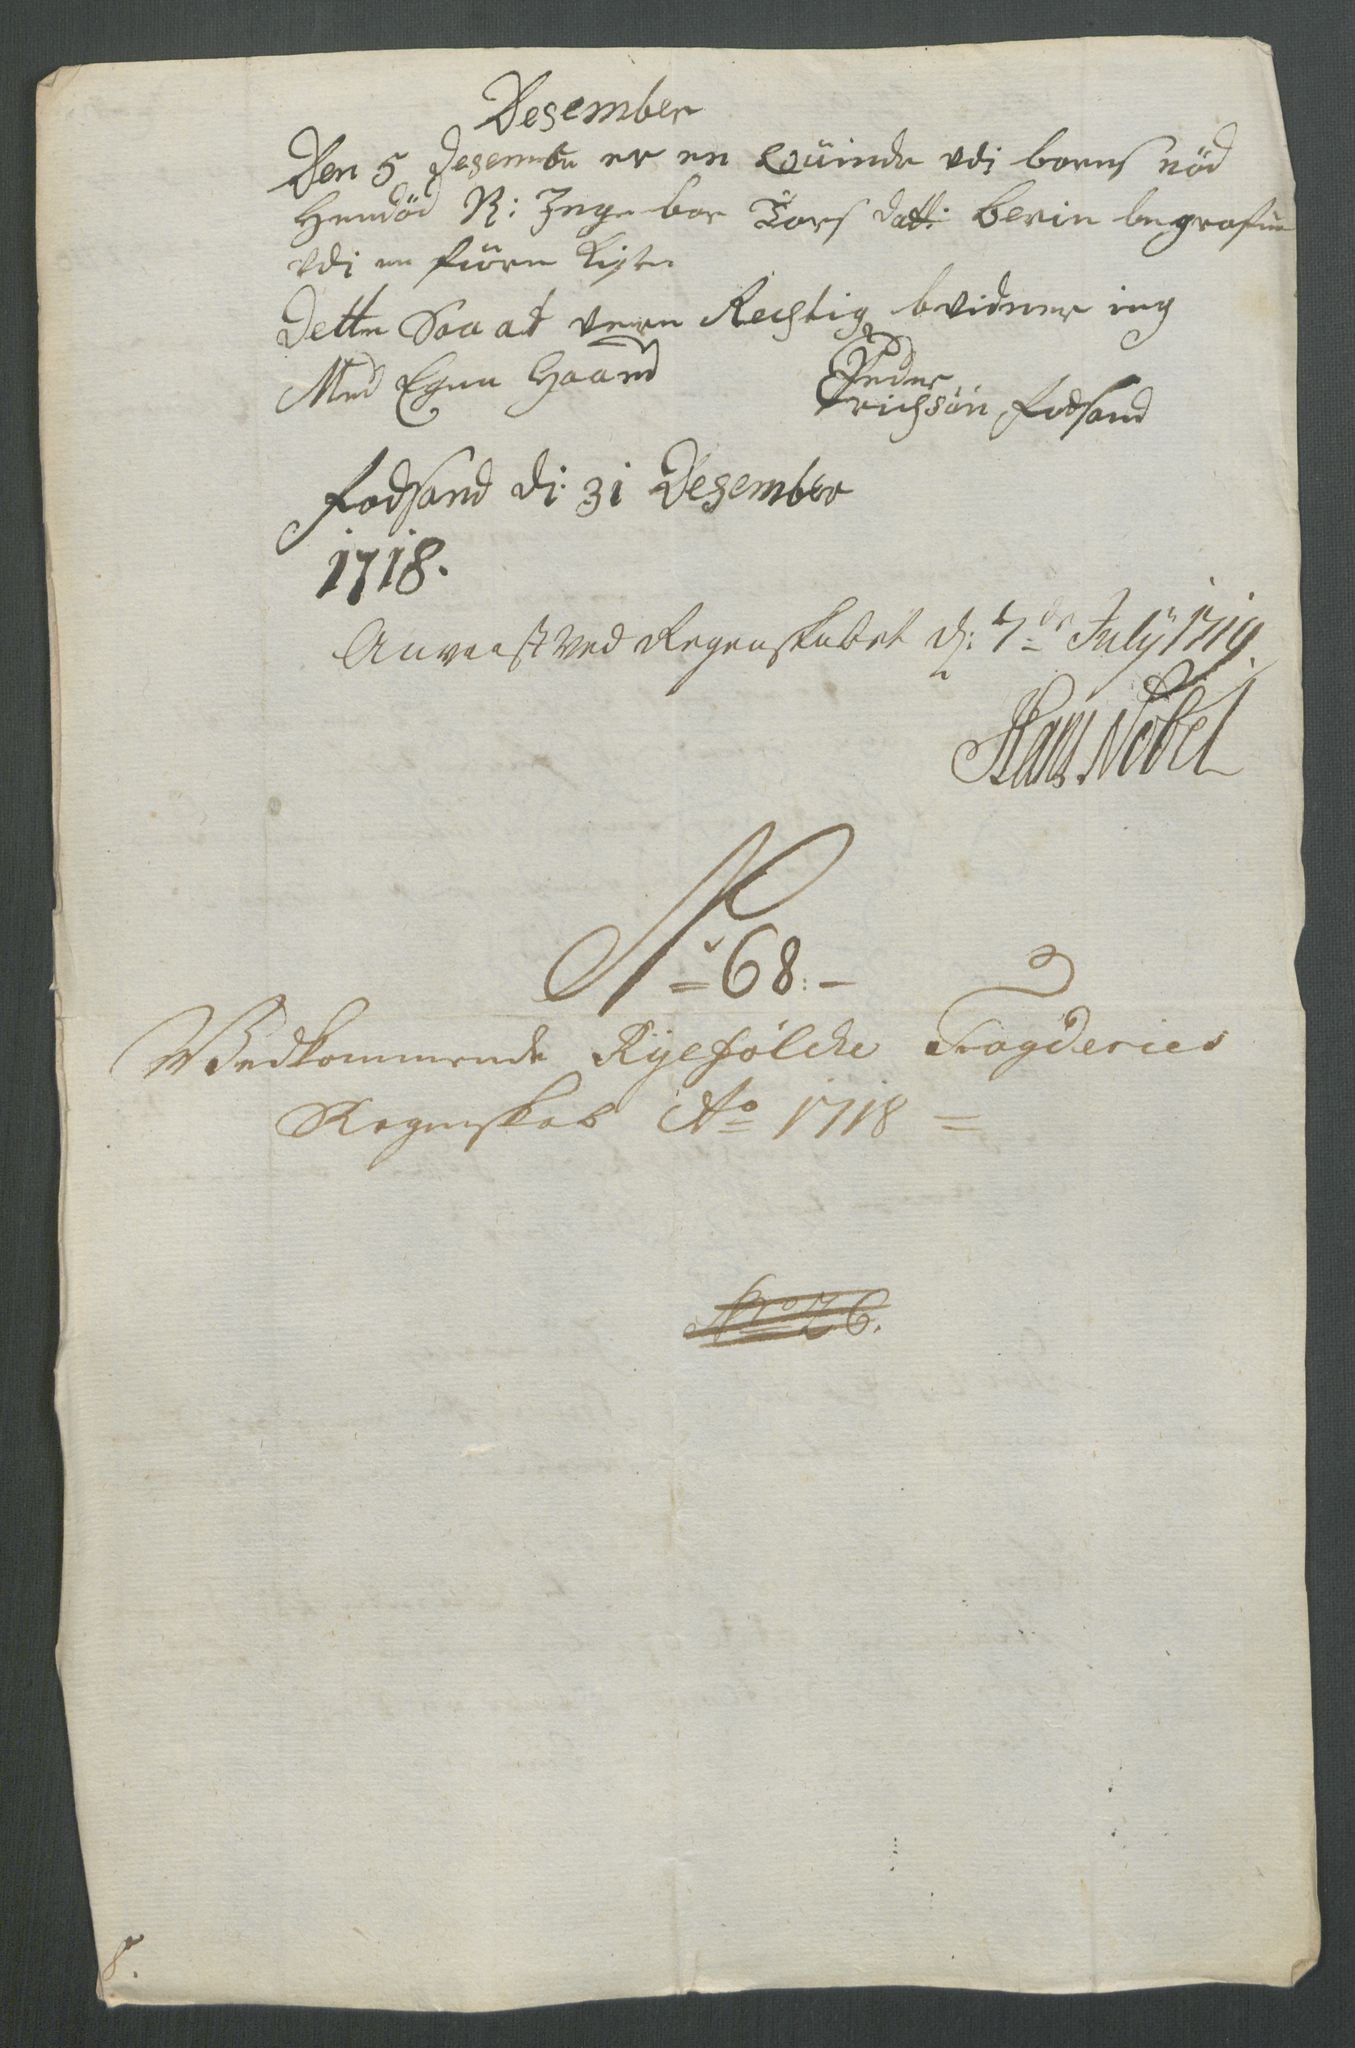 Desember
Den 5 Desember er en Quinde Udi barns nöd
hendöd N: Inge bor Tors datt: bevin begrafue
Udi en fiörn kiste
Dette Saa at vere Rechtig bvidner ieg
Med Egen Haand Peder
Erichsön fodsand
fodsand di: 31 Desember
1718.
Anvüst ved Regenskabet d: 7de July 1719.
Hans Nobel
No 68:-
Vedkommende Ryefölche Fogderies
Regenskab Ao 1718 =
No 26.
8.